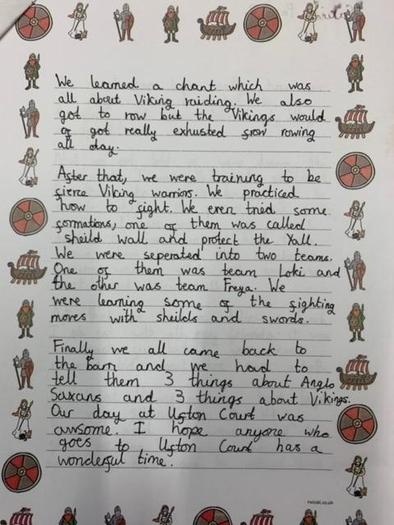 We learned a chant which was
all about Viking raiding. We also
got to row but the Vikings would
of got really exhusted from rowing
all day.
After that, we were training to be
fierce Viking warriors. We practiced
how to fight. We even tried some
formations, one of them was called
sheild wall and protect the Yall.
We were seperated into two teams.
One of them was team Loki and
the other was team Freya. We
were learning some of the fighting
moves with sheilds and swords.
Finally we all came back to
the barn and we had to
tell them 3 things about Anglo
Saxans and 3 things about Vikings.
Our day at Ufton Court was
awsome. I hope anyone who
goes to Ufton Court has a
wonderful time.
twinkl.co.uk